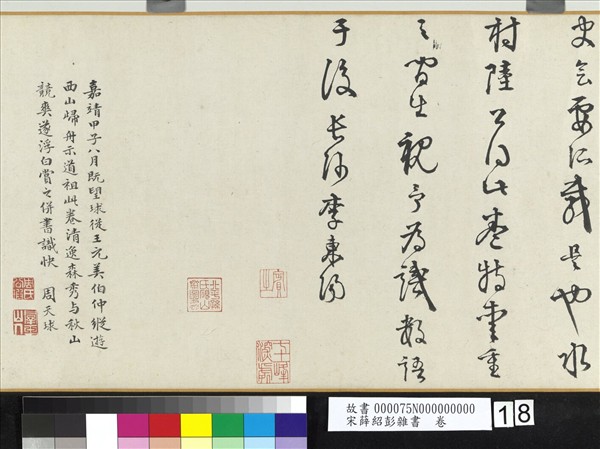 村陸公得此卷特愛重
之間出視予為識數語
于後長沙李東陽
嘉靖甲子八月既望球從王元美伯仲縱遊
西山歸舟示道祖此卷清逸森秀与秋山
競爽遂浮白賞之併書識快 周天球
故書 000075N000000000
宋薛紹彭雜書 卷
18